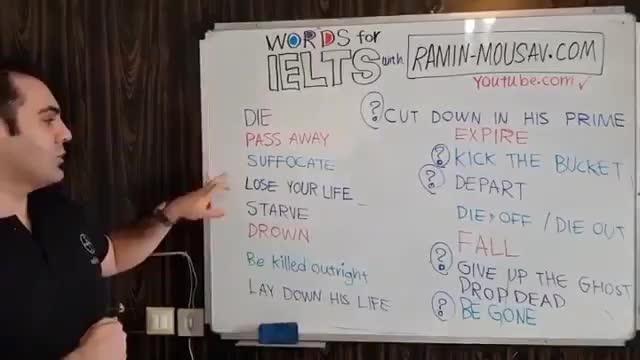 WORDS for
IELTS with RAMIN-MOUSAV.COM
YouTube.com ✓
DIE
PASS AWAY
SUFFOCATE
LOSE YOUR LIFE
STARVE
DROWN
Be killed outright
LAY DOWN HIS LIFE
? CUT DOWN IN HIS PRIME
EXPIRE
? KICK THE BUCKET
? DEPART
DIE OFF / DIE OUT
FALL
? GIVE UP THE GHOST
DROP DEAD
? BE GONE